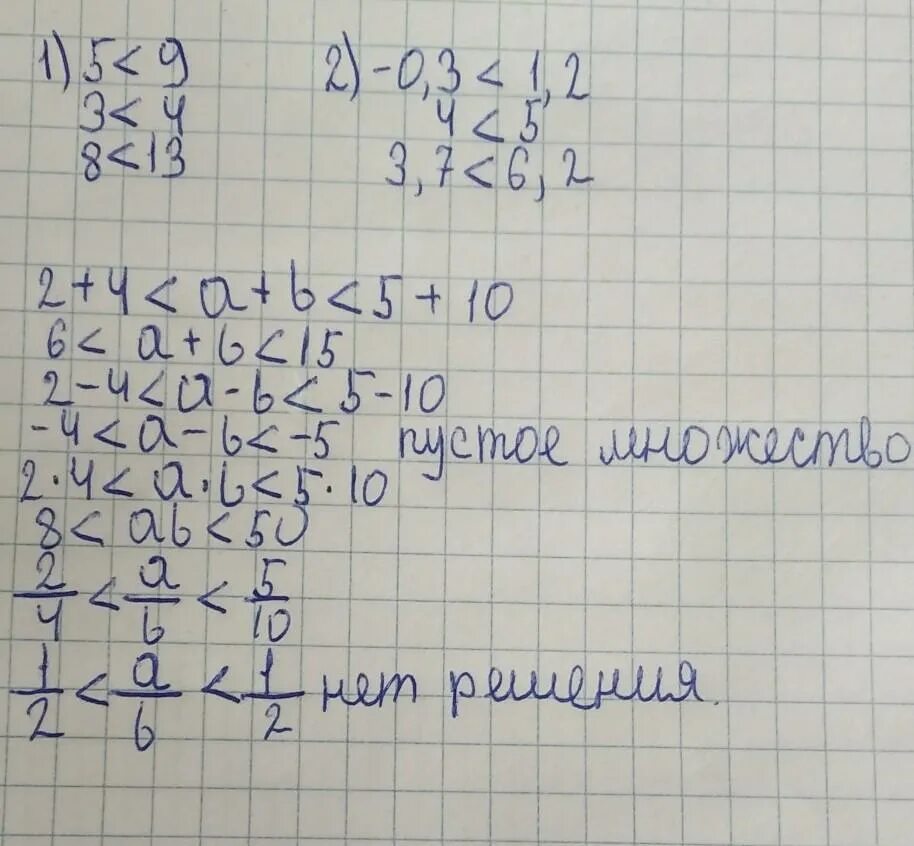 1) 5 < 9
3 < 4
8 < 13
2) -0,3 < 1,2
4 < 5
3,7 < 6,2
2 + 4 < a + b < 5 + 10
6 < a + b < 15
2 - 4 < a - b < 5 - 10
-4 < a - b < -5 пустое множество
2 · 4 < a · b < 5 · 10
8 < ab < 50
2/4 < a/b < 5/10
1/2 < a/b < 1/2 нет решения.